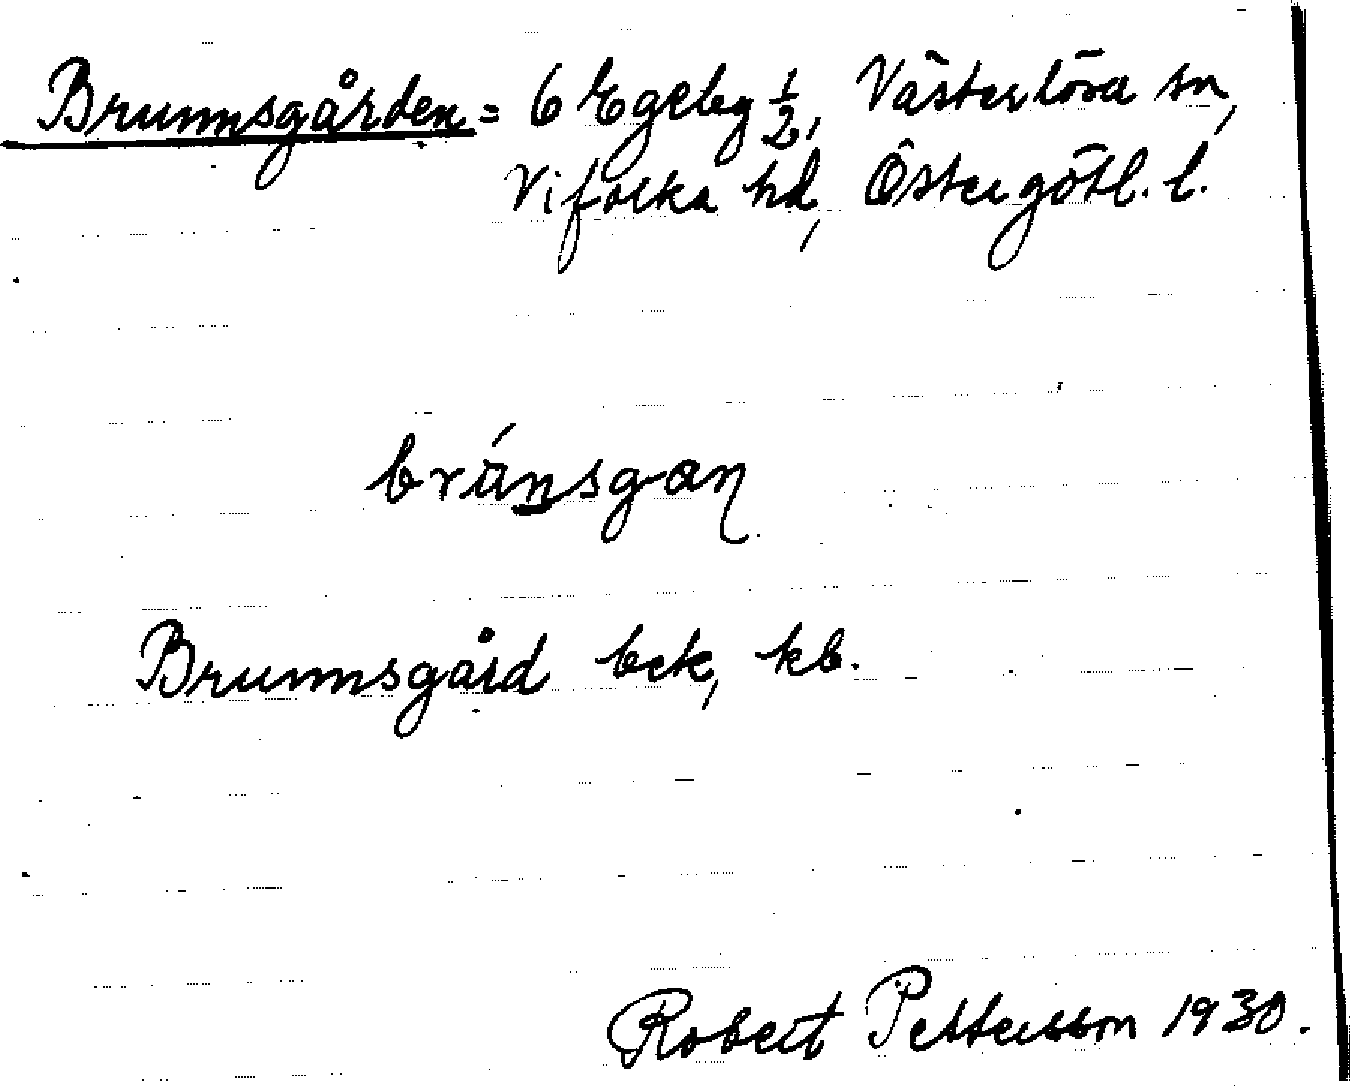 Brunnsgården = 6 Egeby ½, Västerlösa sn,
Vifolka hd, Östergötl. l.
bránsgaɳ
Brunnsgård bek, kb.
Robert Pettersson 1930.